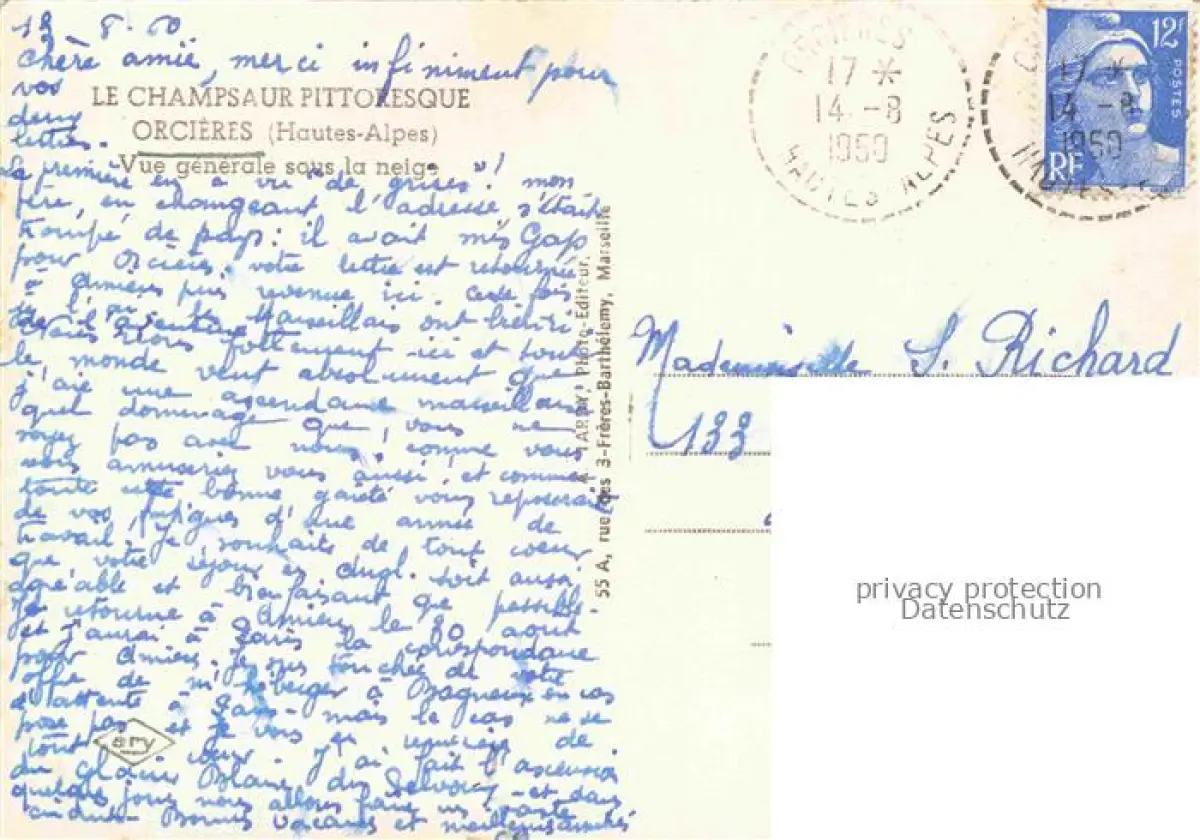 13 8-60
Chère amie, merci infiniment pour
vos
deux
lettres.
LE CHAMPSAUR PITTORESQUE
ORCIÈRES (Hautes-Alpes)
Vue générale sous la neige
La première en a vu "de grises"! mon
père, en changeant l'adresse, s'était
trompé de pays: il avait mis Gap
pour Orcières. votre lettre est retournée
à Amiens puis revenue ici. Cette fois
Marseillais ont
fortement ici et tout
le monde veut absolument que
j'aie une ascendance marseillaise
quel dommage que vous ne
soyez pas avec nous! comme vous
vous amuseriez vous aussi! et comme
toute cette bonne gaieté vous reposerait
de vos fatigues d'une année de
travail! Je souhaite de tout coeur
que votre séjour en Angl. soit aussi
agréable et bienfaisant que possible.
Je retourne à Amiens le 30 août
et j'aurai à Paris la correspondance
pour Amiens. Je suis touchée de votre
offre de m'héberger à Bagneux en cas
d'attente à Paris - mais le cas ne se
pose pas et je vous en remercie de
tout coeur j'ai fait l'ascension
du glacier Blanc, des - et dans
quelques jours nous allons faire une
Bonnes vacances et meilleures amitiés
ary
A. TARDY, Photo-Editeur,
55 A, rue des 3-Frères-Barthélemy, Marseille
ORCIERES
17 *
14 -8
1950
HAUTES-ALPES
17 *
14 -8
1950
12F
POSTES
RF
Mademoiselle S. Richard
133
privacy protection
Datenschutz